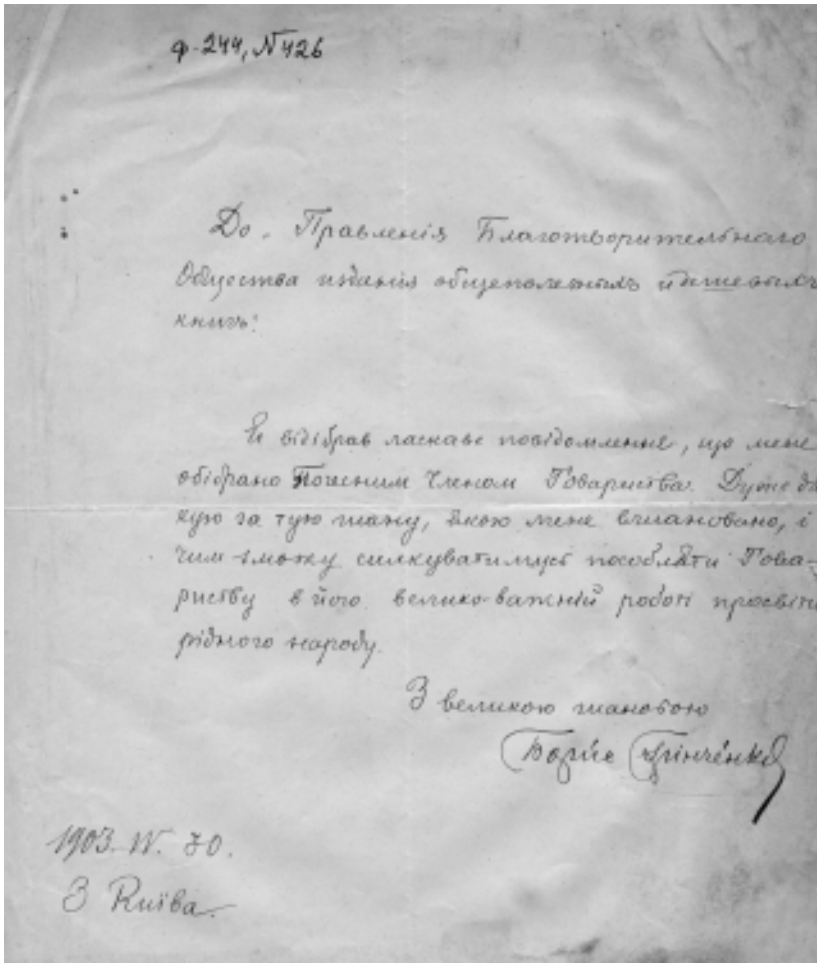 ф. 244, N 426
До. Правленія Благотворительнаго
Общества изданія общеполезныхъ и дешевыхъ
книгъ:
Я відібрав ласкаве повідомлення, що мене
обібрано Почесним Членом Товариства. Дуже дя-
кую за тую шану, якою мене вшановано, і
чим зможу силкуватимусь пособляти Това-
риству в його велико-важній роботі просвіти
рідного народу.
З великою шанобою
Борис Грінченко
1903. IV. 30.
З Київа.